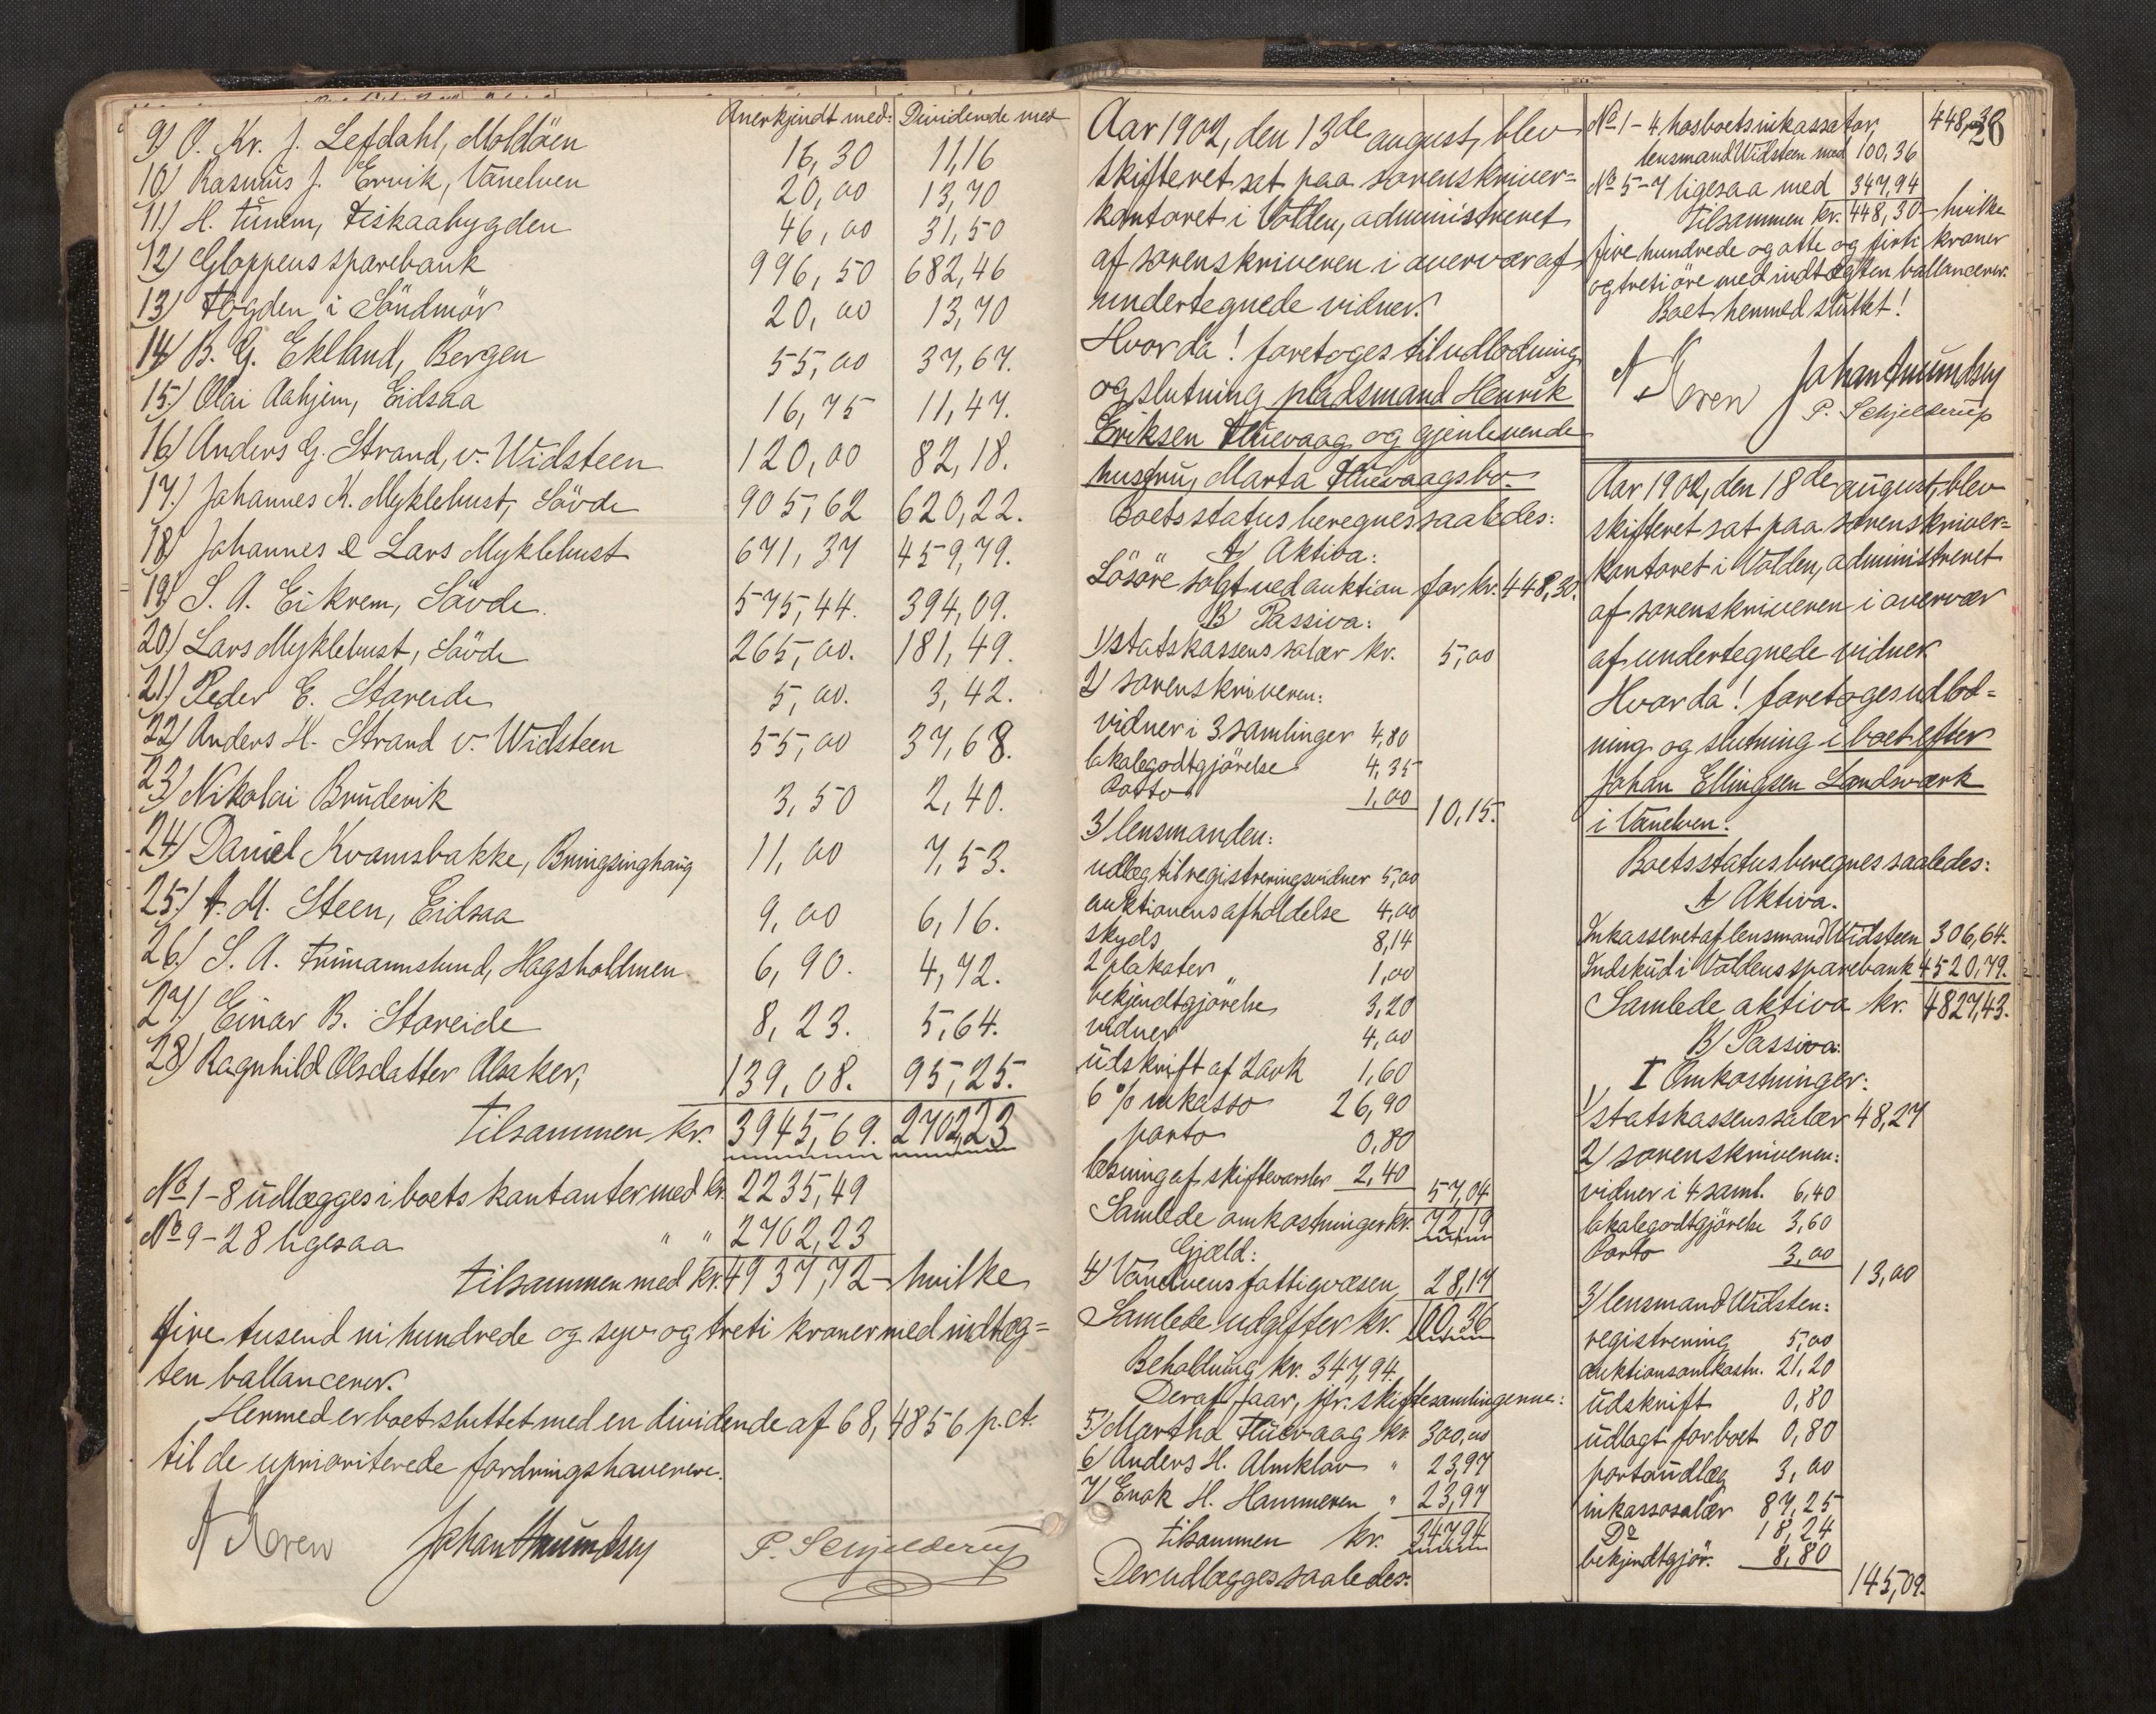 Anerkjendt med: Dividende med
9) O. Kr. J. Lefdahl, Moldöen 16,30 11,16
10) Rasmus J. Ervik, Vanelven 20,00 13,70
11) H. Tunem, Fiskaabygden 46,00 31,50
12) Gloppens sparebank 996,50 682,46
13) Fogden i Söndmör 20,00 13,70
14) B. G. Ekland, Bergen 55,00 37,67.
15) Olai Aahjem, Eidsaa 16,75 11,47.
16) Anders G. Strand, v. Widsteen 120,00 82,18.
17.) Johannes K. Myklebust, Sövde 905,62 620,22.
18) Johannes & Lars Myklebust 671,37 459,79.
19) S. A. Eikrem, Sövde. 575,44. 394,09.
20) Lars Myklebust, Sövde 265,00. 181,49.
21) Peder E. Stareide 5,00. 3,42.
22) Anders H. Strand v. Widsteen 55,00 37,68.
23) Nikolai Brudevik 3,50 2,40.
24) Daniel Kvamsbakke, Bringsinghaug 11,00 7,53.
25.) A. M. Steen, Eidsaa 9,00 6,16.
26.) S. A. Frimannslund, Hagsholmen. 6,90. 4,72.
27.) Einar B. Stareide 8,23. 5,64.
28) Ragnhild Olsdatter Alsaker, 139,08. 95,25.
Tilsammen kr. 3945,69. 2702,23
No 1-8 udlægges i boets kontanter med kr. 2235,49
No 9-28 ligesaa " " 2702,23
Tilsammen med kr. 4937,72 - hvilke
fire tusend ni hundrede og syv og treti kroner med indtæg=
ten ballancerer.
Hermed er boet sluttet med en dividende af 68,4856 p.ct.
til de uprioriterede fordringshaverere.
A Koren Johan Amundsen P. Schjelderup
Aar 1902, den 13de august, blev
skifteret sat paa sorenskriver=
kontoret i Volden, administreret
af sorenskriveren i overvær af
undertegnede vidner.
Hvorda! foretoges til udlodning
og slutning pladsmand Henrik
Eriksen Thuevaag og gjenlevende
husfru, Marta Thuevaags bo.
Boets status beregnes saaledes:
A) Aktiva:
Lösöre solgt ved auktion for kr. 448,30.
B) Passiva:
1) statskassens salær kr. 5,00
2) sorenskriveren:
vidner i 3 samlinger 4,80
lokalegodtgjörelse 4,35
Porto 1,00 10,15.
3) lensmanden:
udlæg til registreringsvidner 5,00
auktionens afholdelse 4,00
skyds 8,14
2 plakater " 1,00
bekjendtgjörelse 3,20
vidner 4,00
udskrift af 2 ark 1,60
6 % inkasso 26,90
porto 0,80
læsning af skiftevarsler 2,40 57,04
Samlede omkostninger kr. 72,19
Gjæld:
4) Vanelvens fattigvæsen 28,17
Samlede udgifter kr. 100,36
Beholdning kr. 347,94.
Deraf faar, jfr. skiftesamlingerne:
5) Martha Thuevaag kr. 300,00
6) Anders H. Almklov " 23,97
7) Enok H. Hammeren " 23,97
Tilsammen kr. 347,94
Der udlægges saaledes:
448,30
No 1-4 hos boets inkassator,
lensmand Widsteen med 100,36
No 5-7 ligesaa med 347,94
Tilsammen kr. 448,30 - hvilke
fire hundrede og otte og firti kroner
og treti öre med indtægten ballancerer.
Boet hermed sluttet!
A Koren Johan Amundsen
P. Schjelderup
Aar 1902, den 18de august, blev
skifteret sat paa sorenskriver=
kontoret i Volden, administreret
af sorenskriveren i overvær
af undertegnede vidner
Hvorda! foretoges udlod=
ning og slutning i boet efter
Johan Ellingsen Landsværk
i Vanelven.
Boets status beregnes saaledes:
A) Aktiva.
Inkasseret af lensmand Widsteen 306,64.
Indskud i Voldens sparebank 4520,79.
Samlede aktiva kr. 4827,43.
B) Passiva:
I Omkostninger:
1) statskassens salær 48,27
2) sorenskriveren:
vidner i 4 saml. 6,40
lokalegodtgjörelse 3,60
Porto 3,00 13,00
3) lensmand Widsten:
registrering 5,00
auktionsomkostn. 21,20
udskrift 0,80
udlagt for boet 0,80
portoudlæg 3,00
inkassosalær 87,25
Do 18,24
bekjendtgjör. 8,80
145,09.